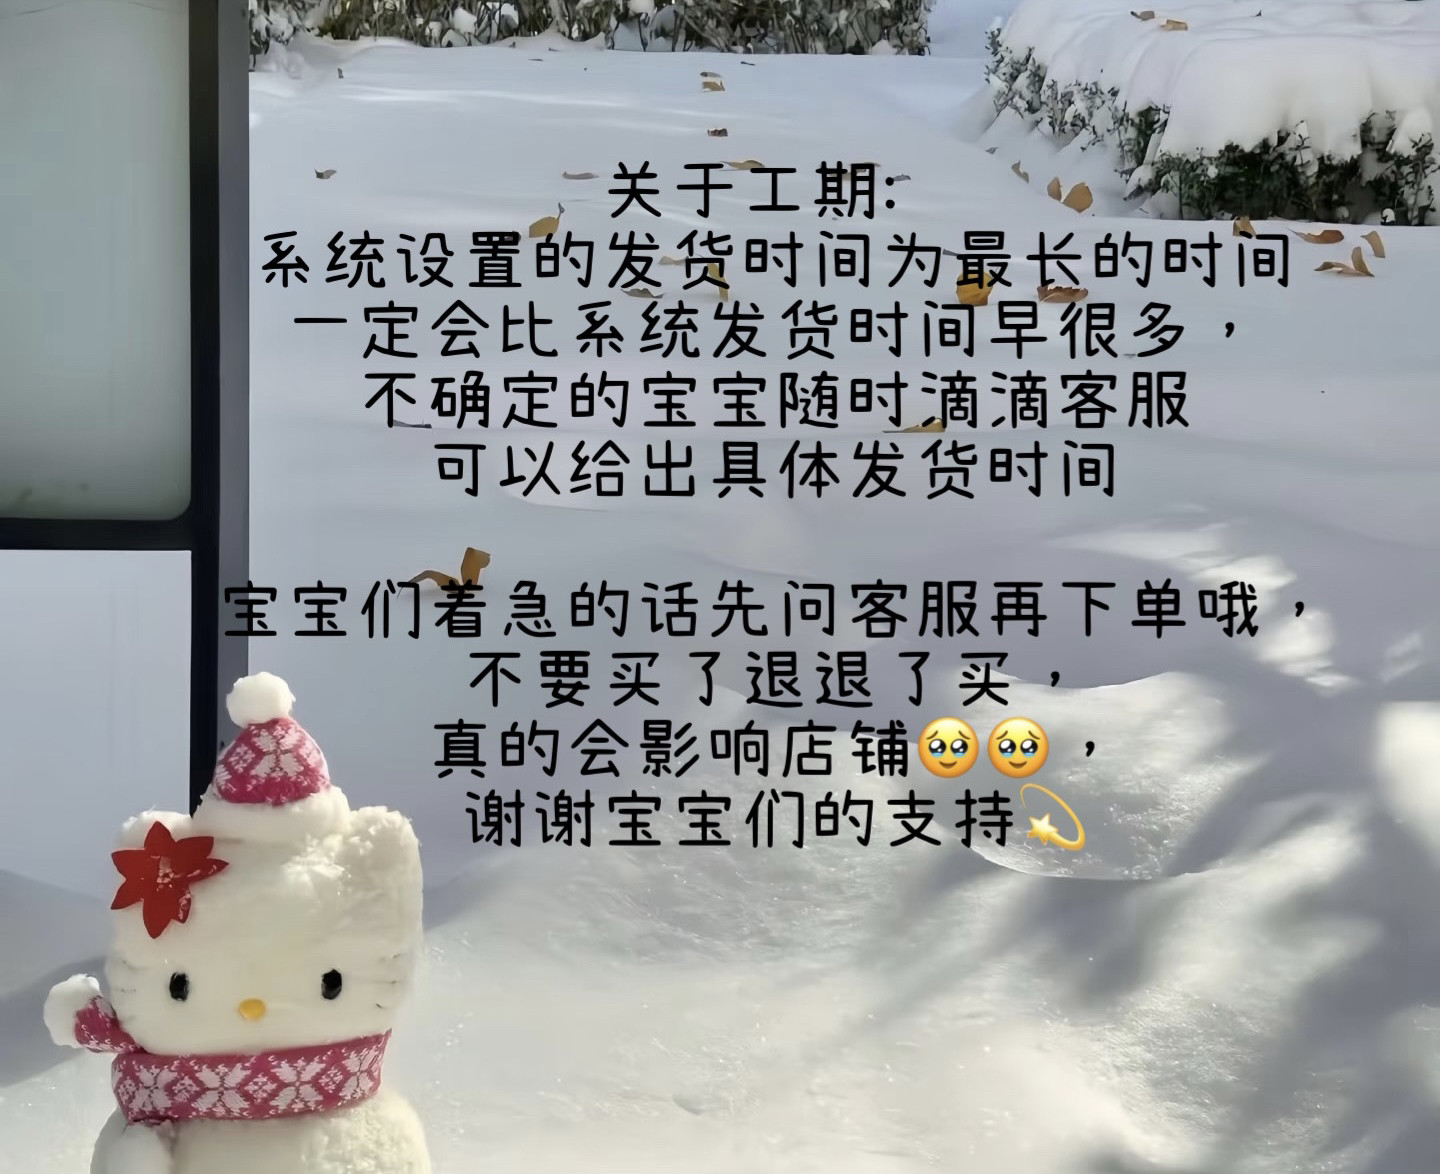 关于工期:
系统设置的发货时间为最长的时间
一定会比系统发货时间早很多，
不确定的宝宝随时滴滴客服
可以给出具体发货时间
宝宝们着急的话先问客服再下单哦，
不要买了退退了买，
真的会影响店铺🥹🥹，
谢谢宝宝们的支持💫